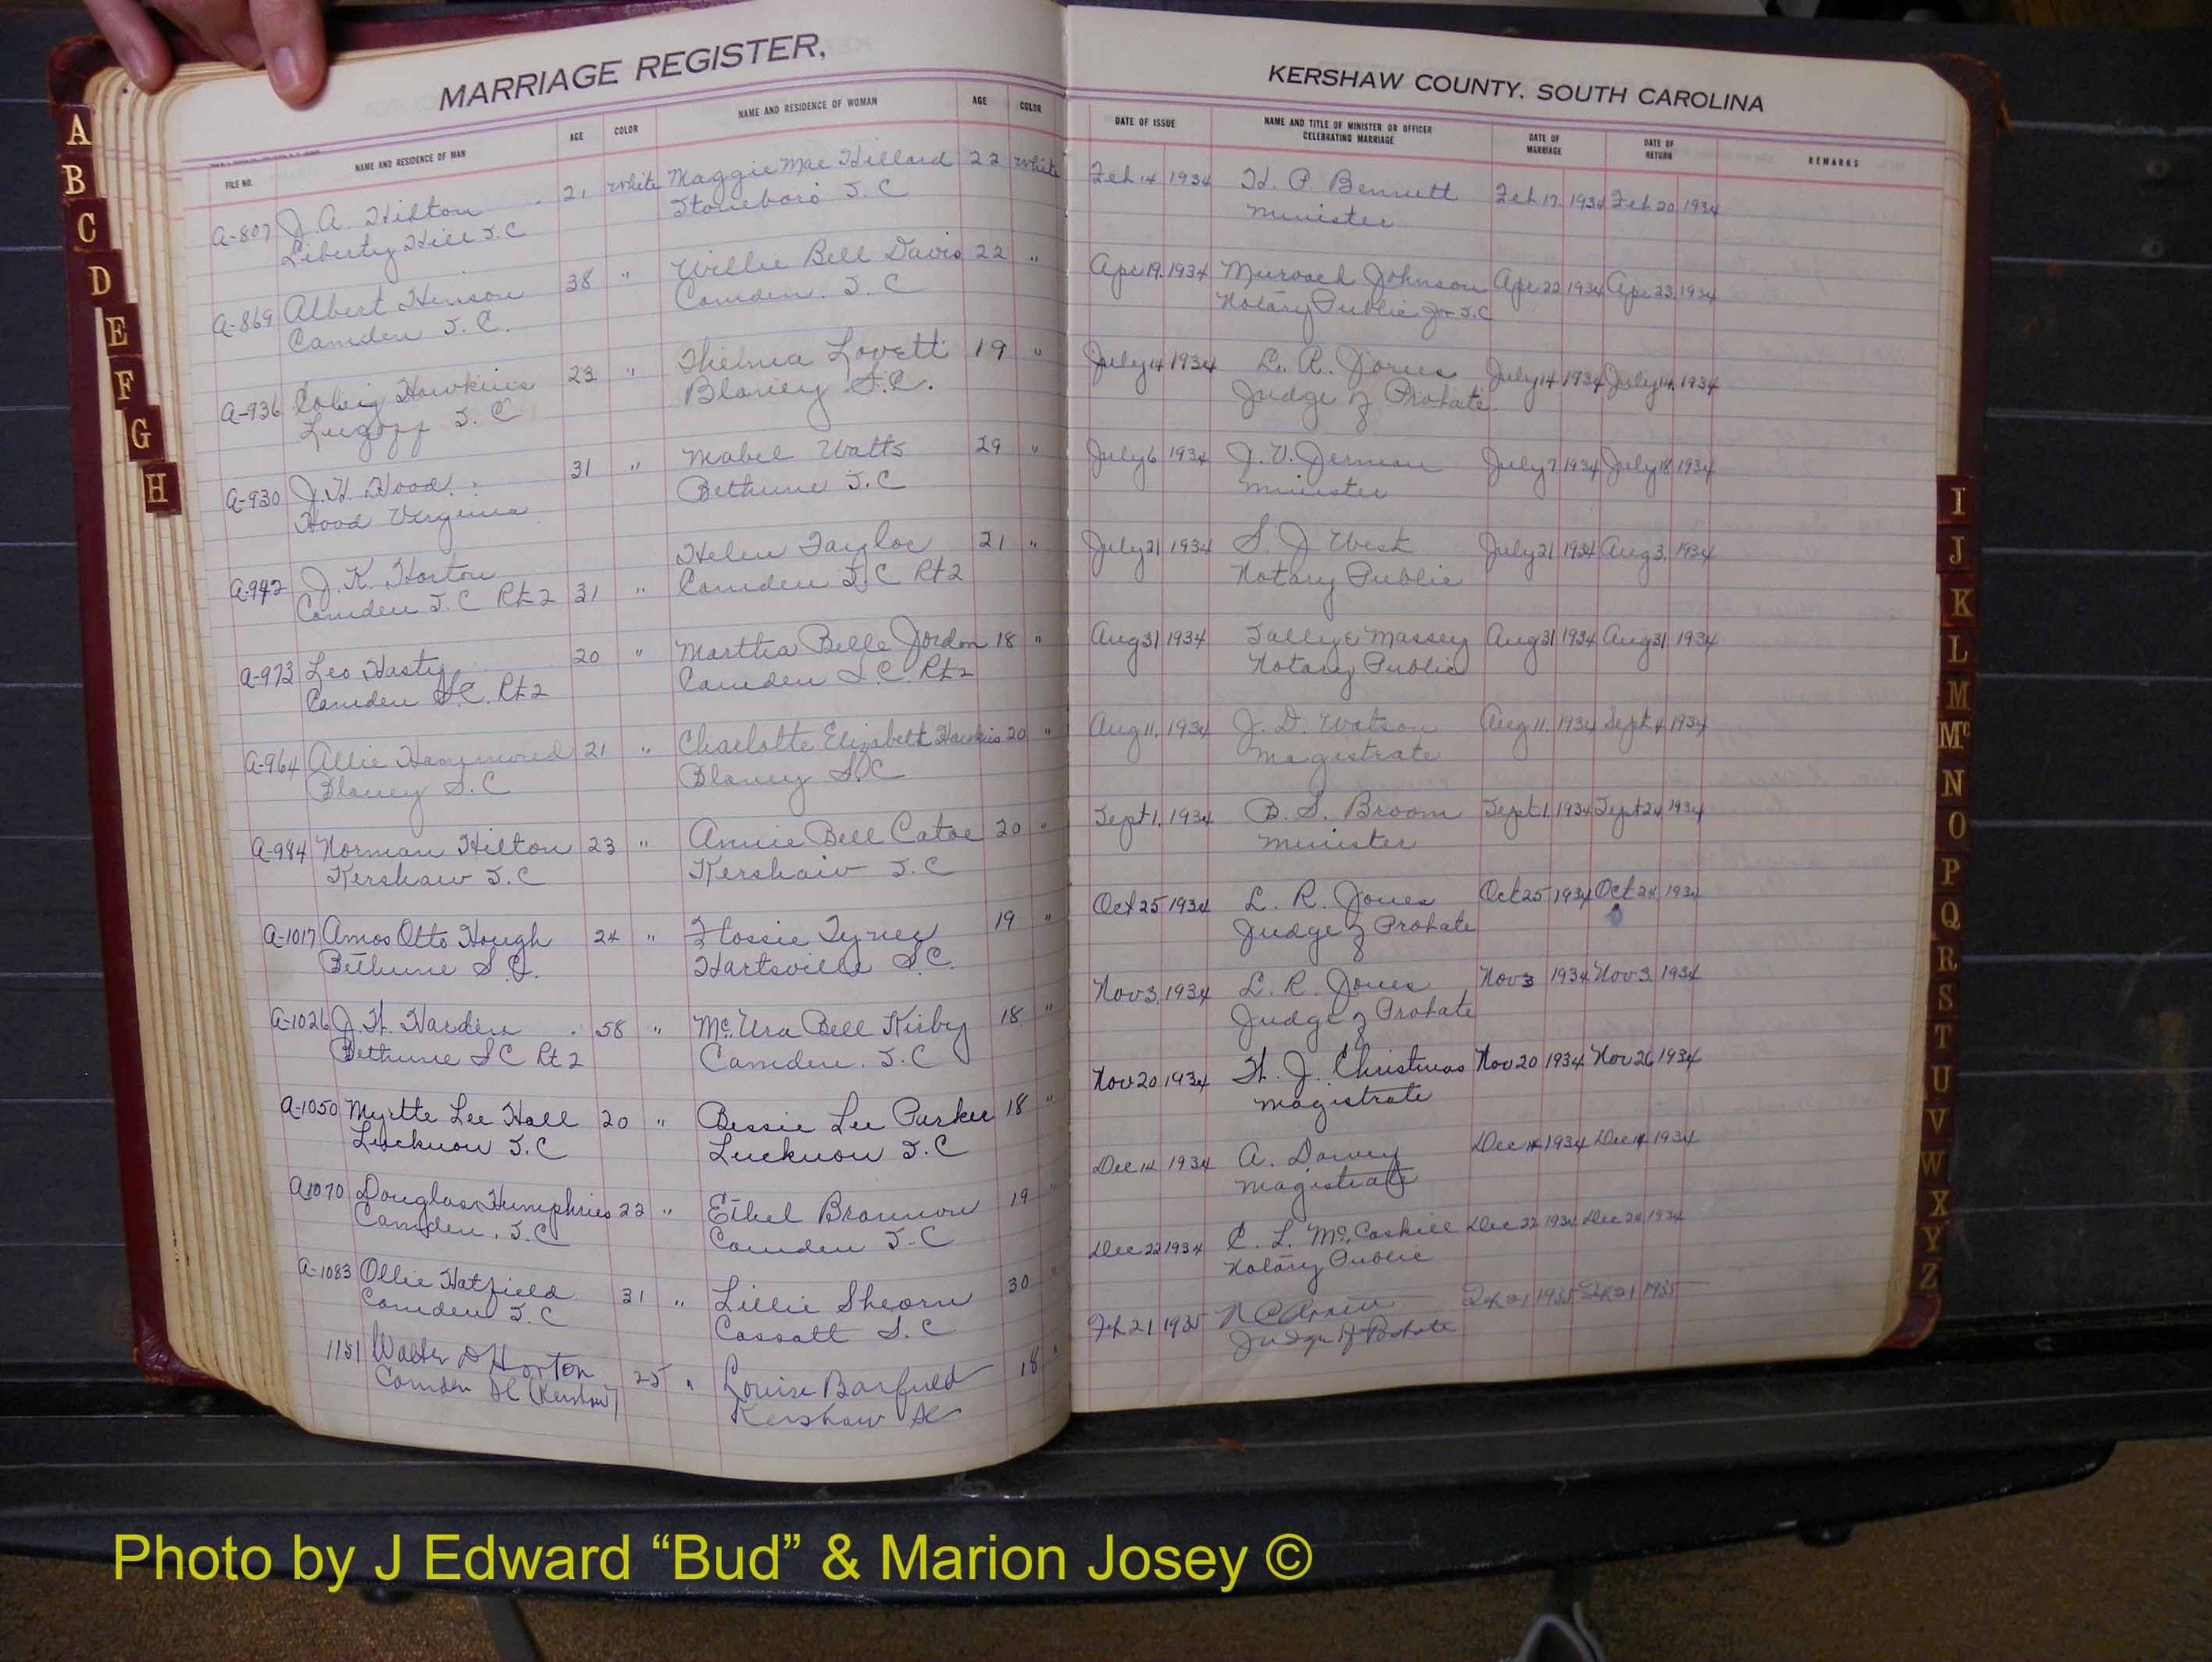 MARRIAGE REGISTER,
KERSHAW COUNTY, SOUTH CAROLINA
FILE NO. NAME AND RESIDENCE OF MAN AGE COLOR NAME AND RESIDENCE OF WOMAN AGE COLOR DATE OF ISSUE NAME AND TITLE OF MINISTER OR OFFICER CELEBRATING MARRIAGE DATE OF MARRIAGE DATE OF RETURN REMARKS
A-807 J. A. Hilton 21 White Maggie Mae Hillard 22 White Feb 14 1934 H. P. Bennett Feb 17, 1934 Feb 20, 1934
Liberty Hill S.C Stoneboro S.C Minister
A-869 Albert Hinson 38 " Willie Bell Davis 22 " Apr 19, 1934 Johnson Apr 22 1934 Apr 23, 1934
Camden S.C. Camden. S.C Notary Public for S.C
A-936 Hawkins 23 " Thelma Lovett 19 " July 14 1934 L. R. Jones July 14 1934 July 14, 1934
Lugoff S.C Blaney S.C. Judge of Probate
A-930 J. H. Hood 31 " Mabel Watts 29 " July 6 1934 J. V. Jerman July 7 1934 July 18 1934
Hood Virginia Bethune S.C Minister
A-942 J. K. Horton 31 " Helen Taylor 21 " July 21 1934 S. J. West July 21 1934 Aug 3, 1934
Camden S.C Rt 2 Camden S.C Rt 2 Notary Public
A-973 Leo Hasty 20 " Martha Belle Jordon 18 " Aug 31 1934 Massey Aug 31 1934 Aug 31 1934
Camden S.C. Rt 2 Camden S.C. Rt 2 Notary Public
A-964 Allie Hammond 21 " Charlotte Elizabeth Hawkins 20 " Aug 11, 1934 J. D. Watson Aug 11, 1934 Sept 4 1934
Blaney S.C Blaney S.C Magistrate
A-984 Norman Hilton 23 " Annie Bell Catoe 20 " Sept 1, 1934 B. S. Broom Sept 1, 1934 Sept 24 1934
Kershaw S.C Kershaw S.C Minister
A-1017 Amos Otto Hough 24 " Flossie Tyner 19 " Oct 25 1934 L. R. Jones Oct 25 1934 Oct 1934
Bethune S.C. Hartsville S.C. Judge of Probate
A-1026 J. H. Harden 58 " Bell Kirby 18 " Nov 3, 1934 L. R. Jones Nov 3 1934 Nov 3, 1934
Bethune SC Rt 2 Camden. S.C Judge of Probate
A-1050 Myrtte Lee Hall 20 " Bessie Lee Parker 18 " Nov 20 1934 H. J. Christmas Nov 20 1934 Nov 26 1934
Lucknow S.C Lucknow S.C Magistrate
A1070 Douglas Humphries 22 " Ethel Brannon 19 " Dec 14 1934 A. Dec 14 1934 Dec 14 1934
Camden, S.C Camden S-C Magistrate
A-1083 Ollie Hatfield 31 " Lillie Shearn 30 " Dec 22 1934 C. L. McCaskill Dec 22 1934 Dec 1934
Camden S.C Cassatt S.C Notary Public
1151 Walter D Horton 25 " Louise Barfield 18 " Feb 21 1935 N C Arnett Feb 21 1935 Feb 21 1935
Camden SC (Kershaw) Kershaw SC Judge of Probate
A
B
C
D
E
F
G
H
I
J
K
L
M
Mc
N
O
P
Q
R
S
T
U
V
W
X
Y
Z
Photo by J Edward “Bud” & Marion Josey ©